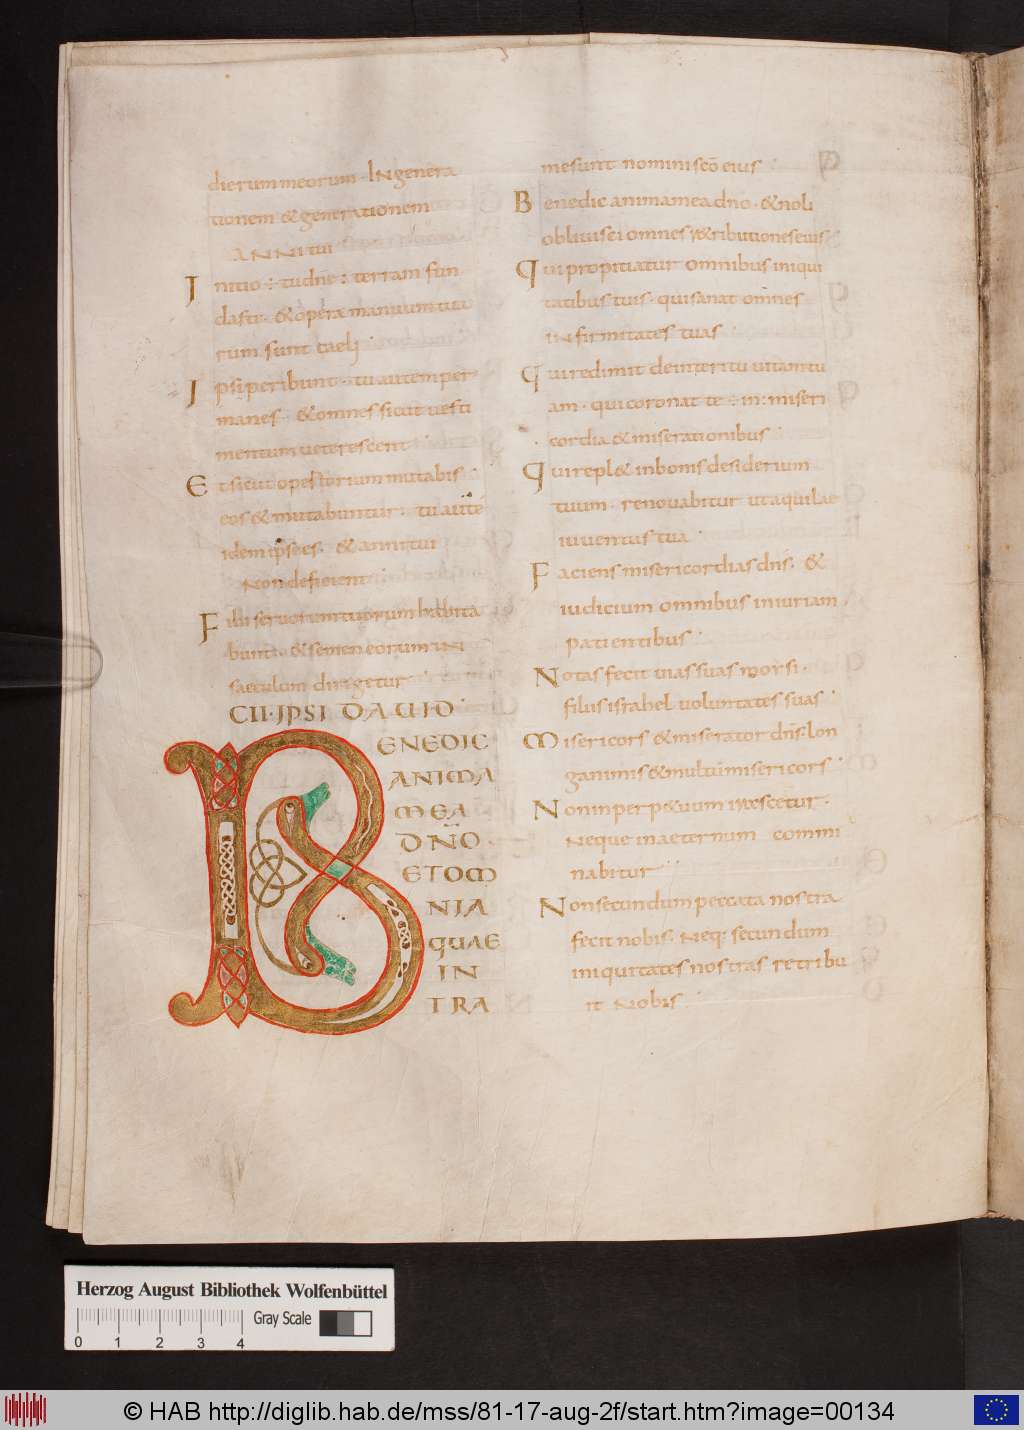 dierum meorum · In genera
tionem & generationem
ANNI tui
Initio : tu dne : terram fun
dasti · & opera manuum tua
rum sunt caeli ·
Ipsi peribunt · tu autem per
manes · & omnes sicut vesti
mentum veterescent ·
Et sicut opestorium mutabis ·
eos & mutabuntur · tu aute
idem ipse es · & anni tui
Non deficient ·
Filii servorum tuorum habita
bunt · & semen eorum IN
saeculum dirigetur ·
CII · IPSI DAUID ·
BENEDIC
ANIMA
MEA
DNO ·
ET OM
NIA
QUAE
IN
TRA
me sunt nomini scō eius ·
Benedic anima mea dno · & noli
oblivisci omnes r&ributiones eius
Qui propitiatur omnibus iniqui
tatibus tuis · qui sanat omnes
INfirmitates tuas ·
Qui redimit de interitu vitam tu
am · qui coronat te : in : miseri
cordia & miserationibus ·
Qui repl& in bonis desiderium
tuum · renovabitur ut aquilae
iuventus tua ·
Faciens misericordias dns · &
iudicium omnibus iniuriam
patientibus ·
Notas fecit vias suas morsi ·
filiis israhel voluntates suas ·
Misericors & miserator dns : lon
ganimis & multu misericors ·
Non in perp&uum irascetur ·
Neque in aeternum commi
nabitur
Non secundum peccata nostra
fecit nobis · Neq; secundum
iniquitates nostras retribu
it Nobis ·
Herzog August Bibliothek Wolfenbüttel
Gray Scale
0 1 2 3 4
© HAB http://diglib.hab.de/mss/81-17-aug-2f/start.htm?image=00134